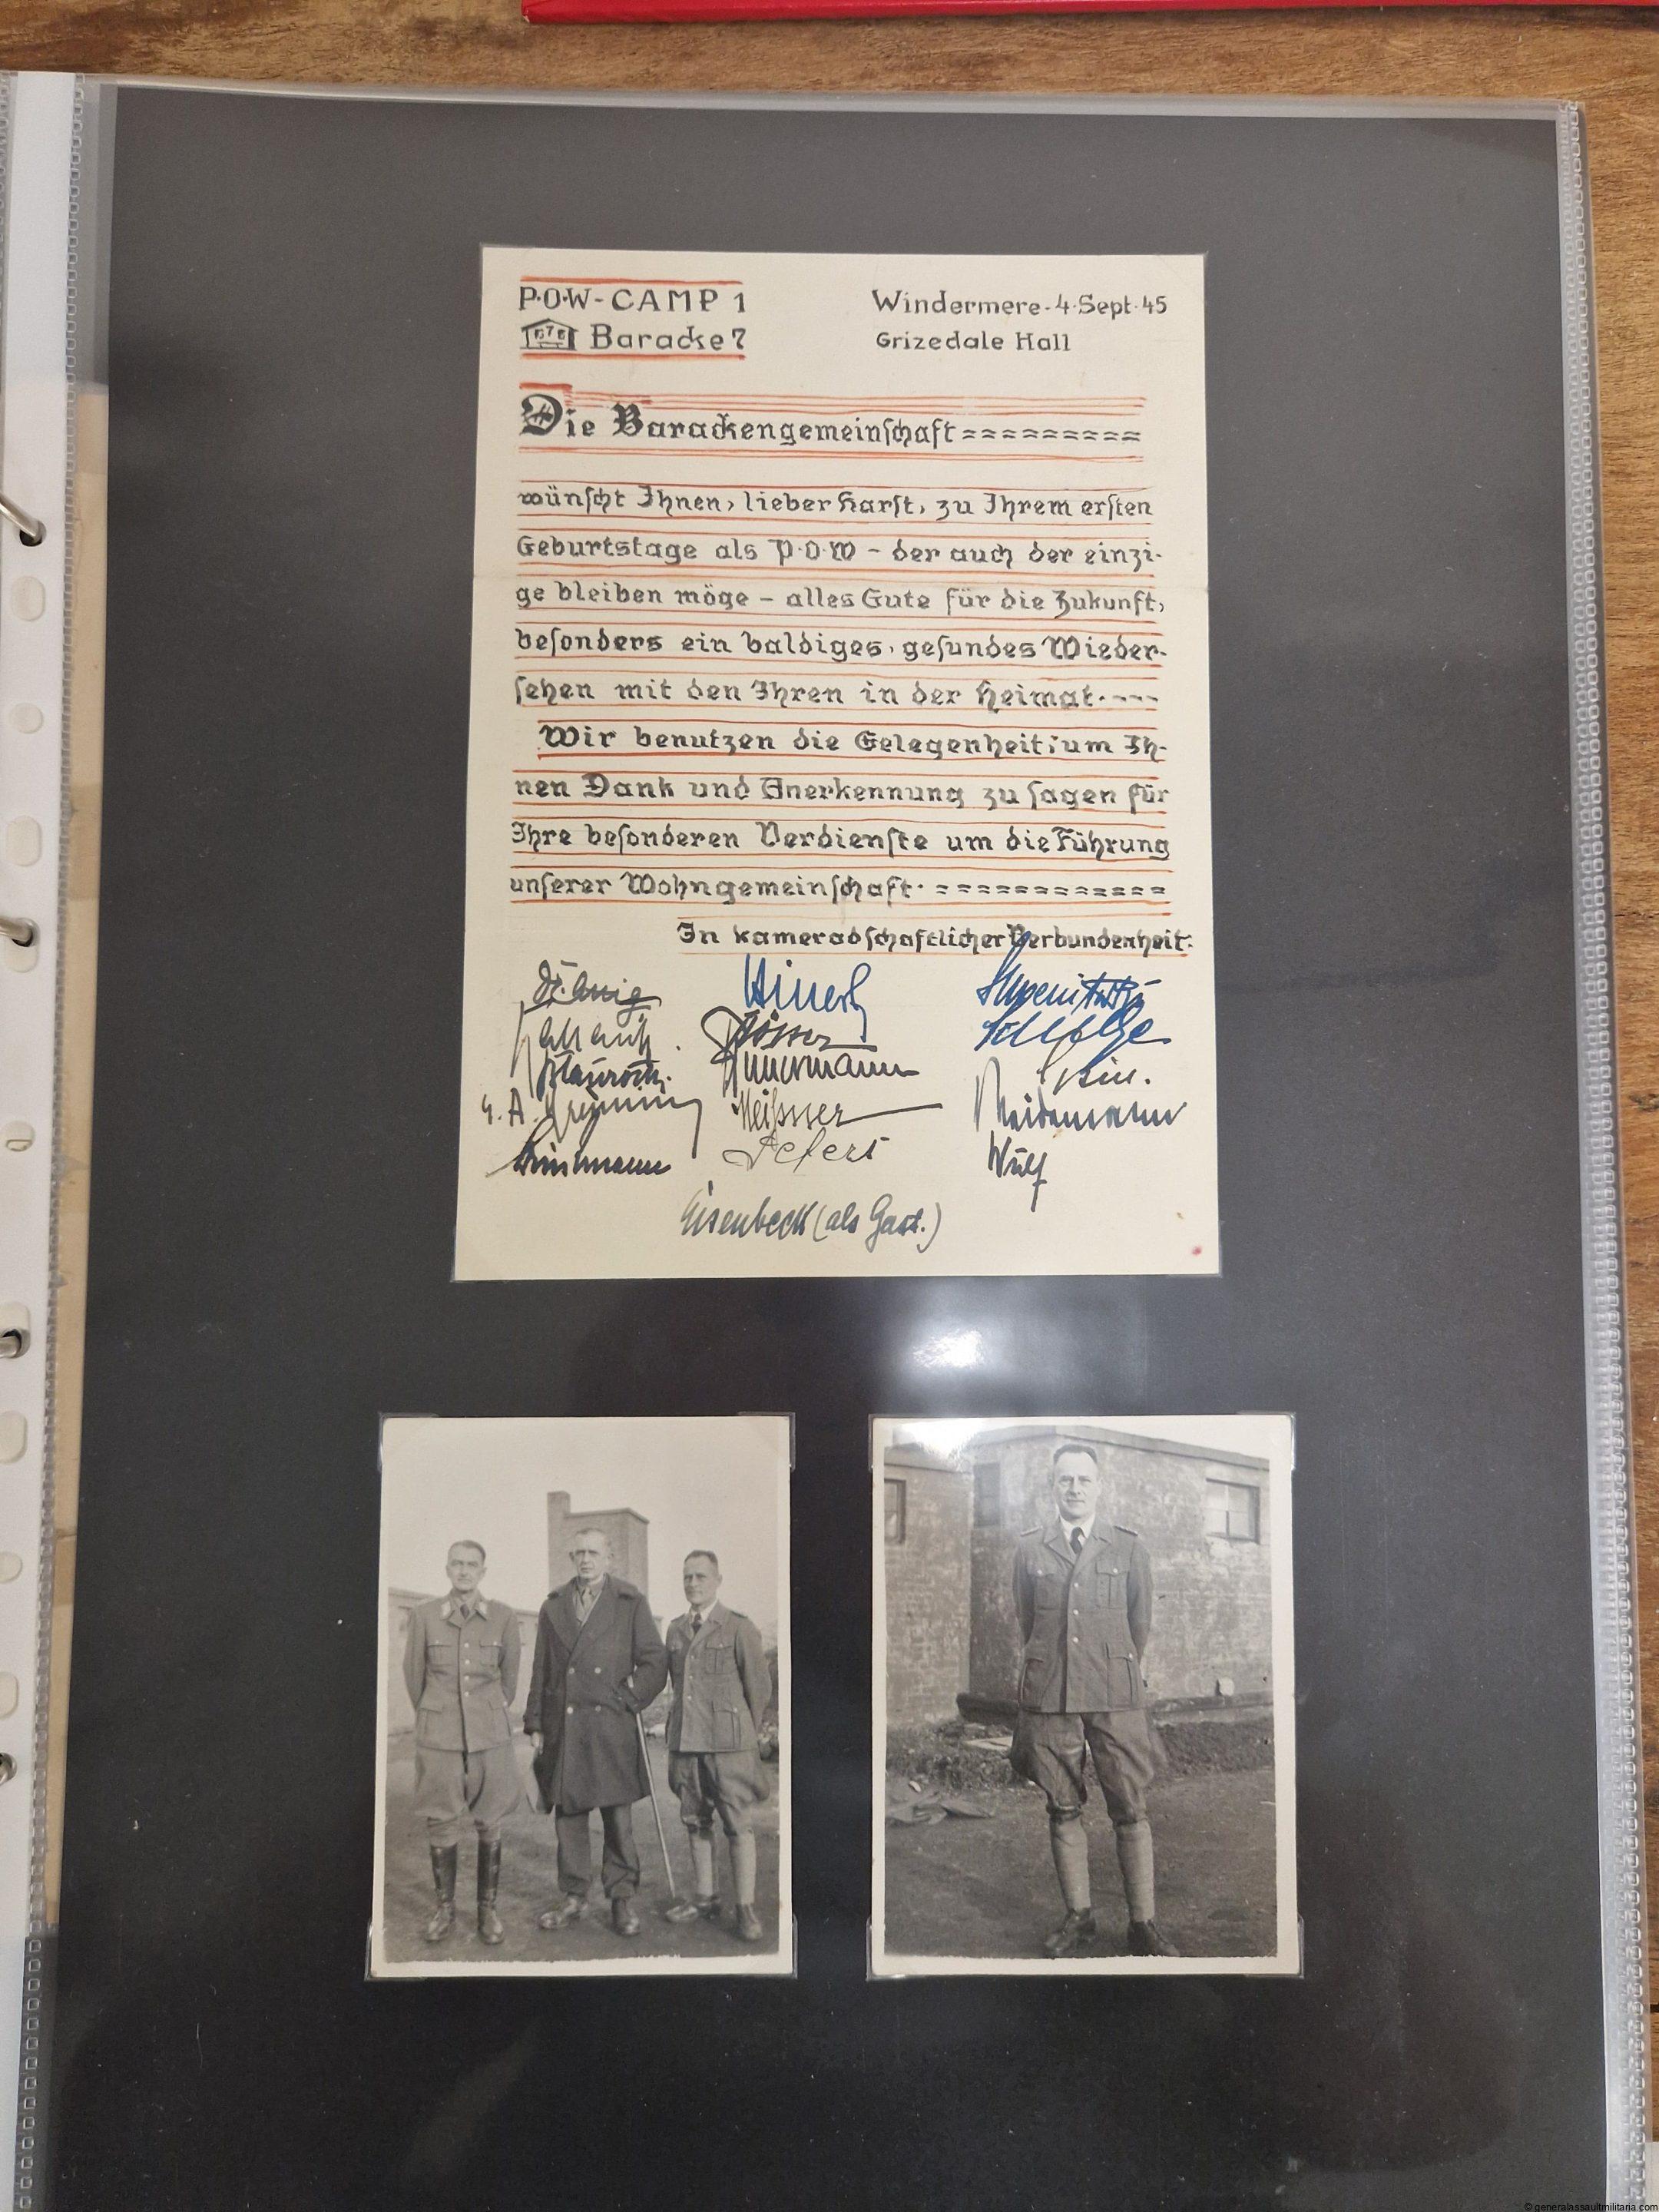 P·O·W-CAMP 1
Baracke 7
Windermere-4·Sept·45
Grizedale Hall
Die Barackengemeinschaft =========
wünscht Ihnen, lieber Karst, zu Ihrem ersten
Geburtstage als P·O·W - der auch der einzi-
ge bleiben möge - alles Gute für die Zukunft,
besonders ein baldiges, gesundes Wieder-
sehen mit den Ihren in der Heimat·---
Wir benutzen die Gelegenheit, um Ih-
nen Dank und Anerkennung zu sagen für
Ihre besonderen Verdienste um die Führung
unserer Wohngemeinschaft· ============
In kameradschaftlicher Verbundenheit:
Meissner
Wulf
Eisenbeck (als Gast.)
© generalassaultmilitaria.com